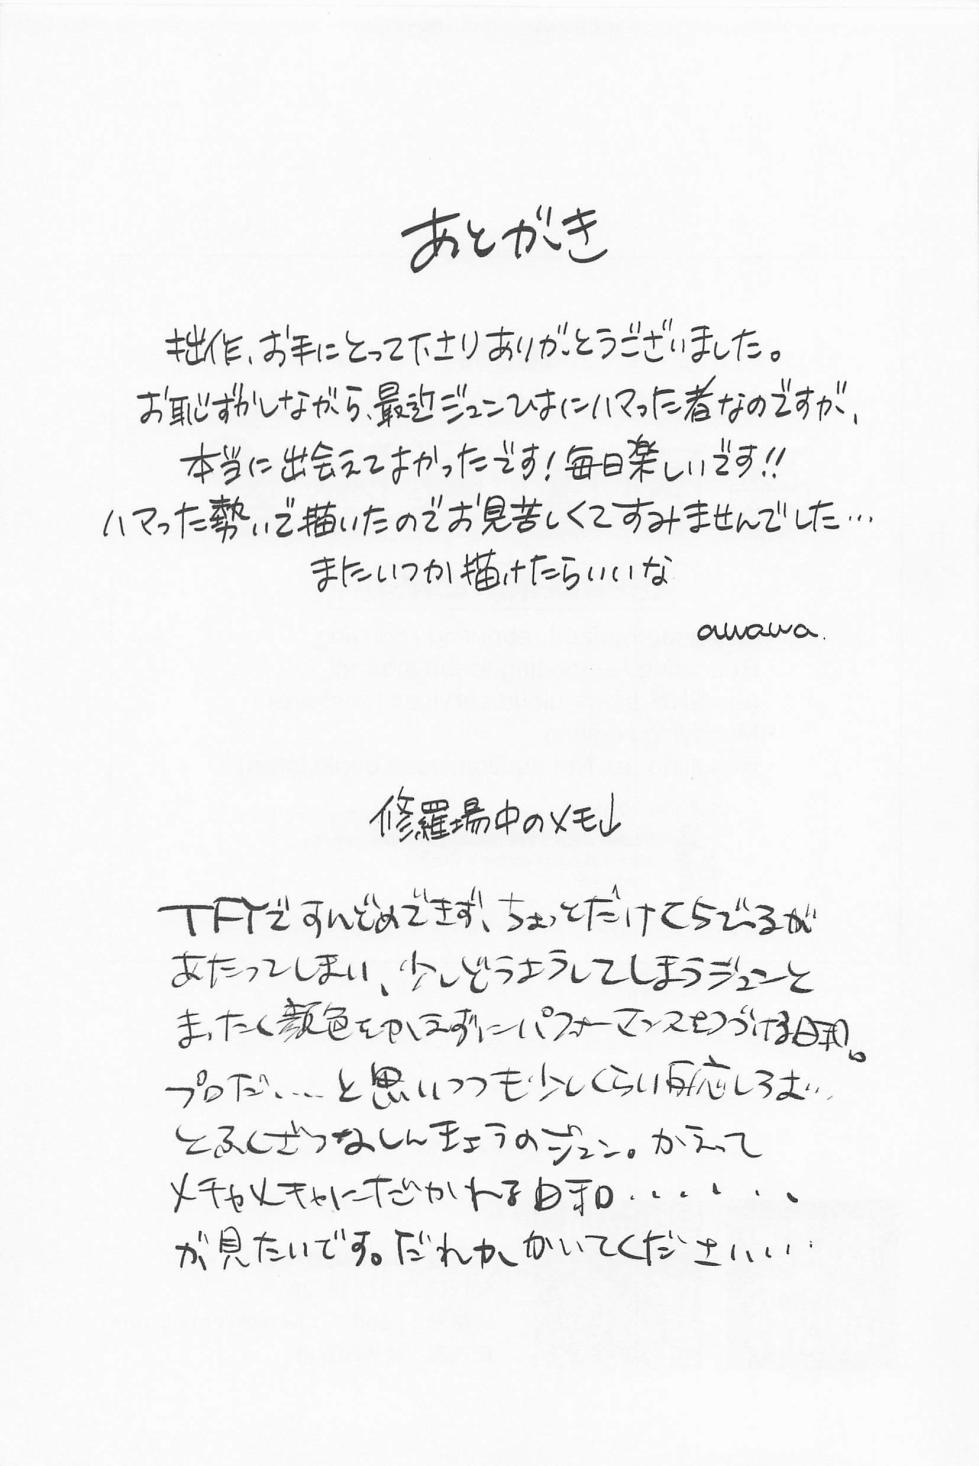 あとがき
拙作、お手にとって下さりありがとうございました。
お恥ずかしながら、最近ジュンひよにハマった者なのですが、
本当に出会えてよかったです！毎日楽しいです!!
ハマった勢いで描いたのでお見苦しくてすみませんでした…
またいつか描けたらいいな
awawa.
修羅場中のメモ↓
TFYですんどめできず、ちょっとだけくちびるが
あたってしまい、少しどうようしてしまうジュンと
まったく顔色をかえずにパフォーマンスをつづける日和。
プロだ……と思いつつも少しくらい反応しろよ…
とふくざつなしんきょうのジュン。かえって
メチャメチャにだかれる日和・・・・・・・
が見たいです。だれか、かいてくださいい…